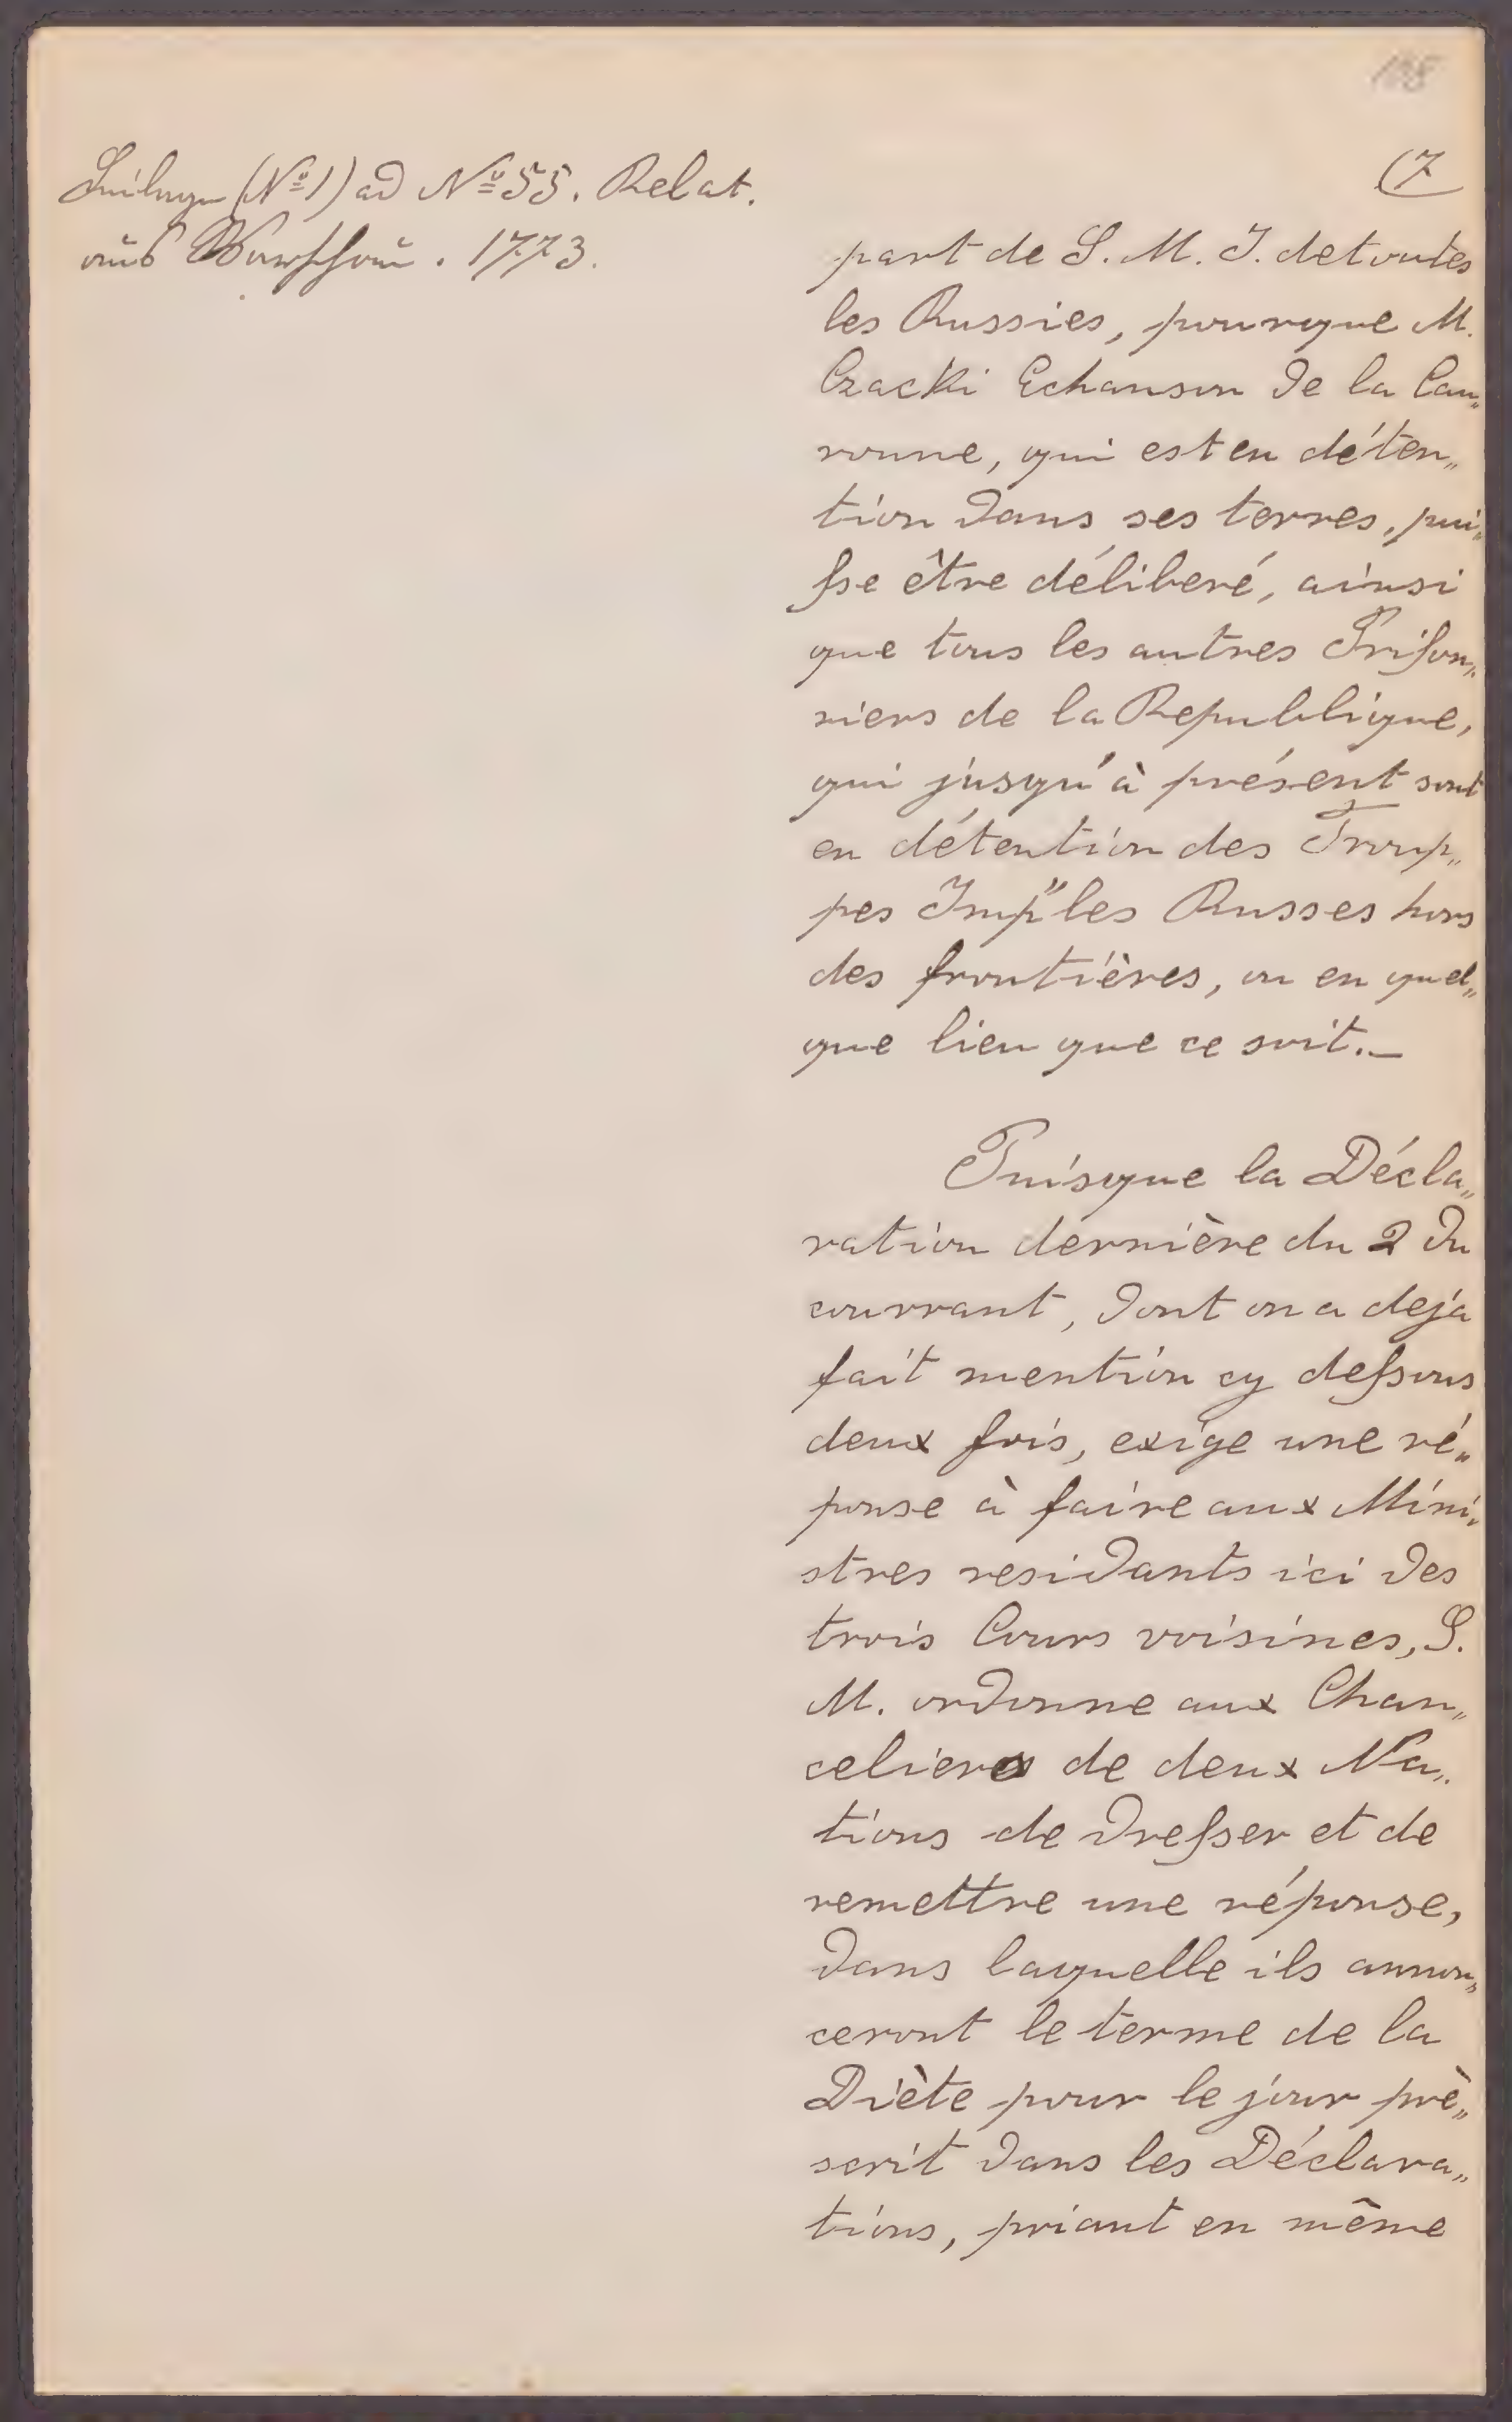 108
Beilage (No 1) ad No 55. Relat.
aus Warschau. 1773.
(7
part de S. M. I. de toutes
les Russies, pour que M.
Czacki Echanson de la Cou„
ronne, qui est en déten„
tion dans ses terres, pui„
sse être déliberé, ainsi
que tous les autres Prison„
niers de la Republique,
qui jusqu'à présent sont
en détention des Troup„
pes Imp"les Russes hors
des frontières, ou en quel„
que lieu que ce soit._
Puisque la Décla„
ration dernière du 2 du
courrant, dont on a deja
fait mention cy dessous
deux fois, exige une ré„
ponse à faire aux Mini„
stres residants ici des
trois Cours voisines, S.
M. ordonne aux Chan„
celiers de deux Na„
tions de dresser et de
remettre une réponse,
dans laquelle ils annon„
ceront le terme de la
Diète pour le jour prè„
scrit dans les Déclara„
tions, priant en même